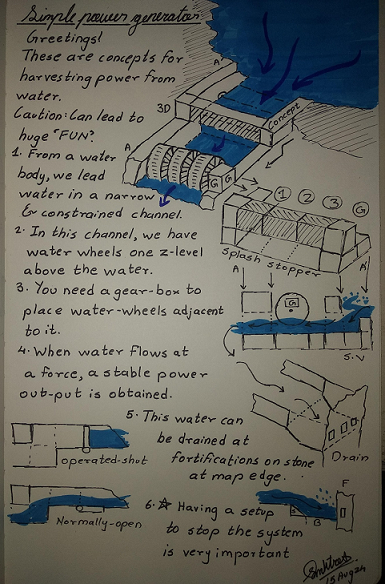 Simple power generator
Greetings!
These are concepts for
harvesting power from
water.
Caution: Can lead to
huge "FUN"
1. From a water
body, we lead
water in a narrow
& constrained channel.
2. In this channel, we have
water wheels one z-level
above the water.
3. You need a gear-box to
place water-wheels adjacent
to it.
4. When water flows at
a force, a stable power
out-put is obtained.
5. This water can
be drained at
fortifications on stone
at map edge.
6. ☆ Having a setup
to stop the system
is very important
3D
A'
A
Concept
G
G
1 2 3 G
Splash stopper
A
A'
G
S.V
Drain
operated-shut
Normally-open
B
F
15 Aug 24